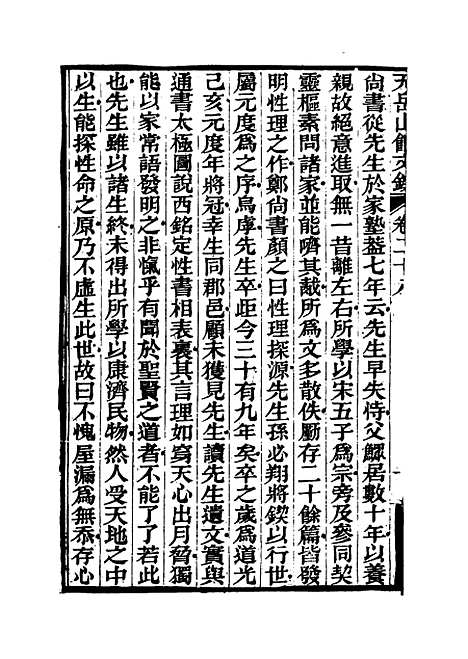 天岳山館文鈔 卷二十八
尚書從先生於家塾葢七年云先生早失恃父鰥居數十年以養
親故絕意進取無一昔離左右所學以宋五子爲宗旁及參同契
靈樞素問諸家並能嚌其胾所爲文多散佚厪存二十餘篇皆發
明性理之作鄭尚書顏之曰性理探源先生孫必翔將鍥以行世
屬元度爲之序烏虖先生卒距今三十有九年矣卒之歲爲道光
己亥元度年將冠幸生同郡邑顧未獲見先生讀先生遺文實與
通書太極圖說西銘定性書相表裏其言理如寫天心出月脅獨
能以家常語發明之非愾乎有聞於聖賢之道者不能了了若此
也先生雖以諸生終未得出所學以康濟民物然人受天地之中
以生能探性命之原乃不虛生此世故曰不愧屋漏爲無忝存心